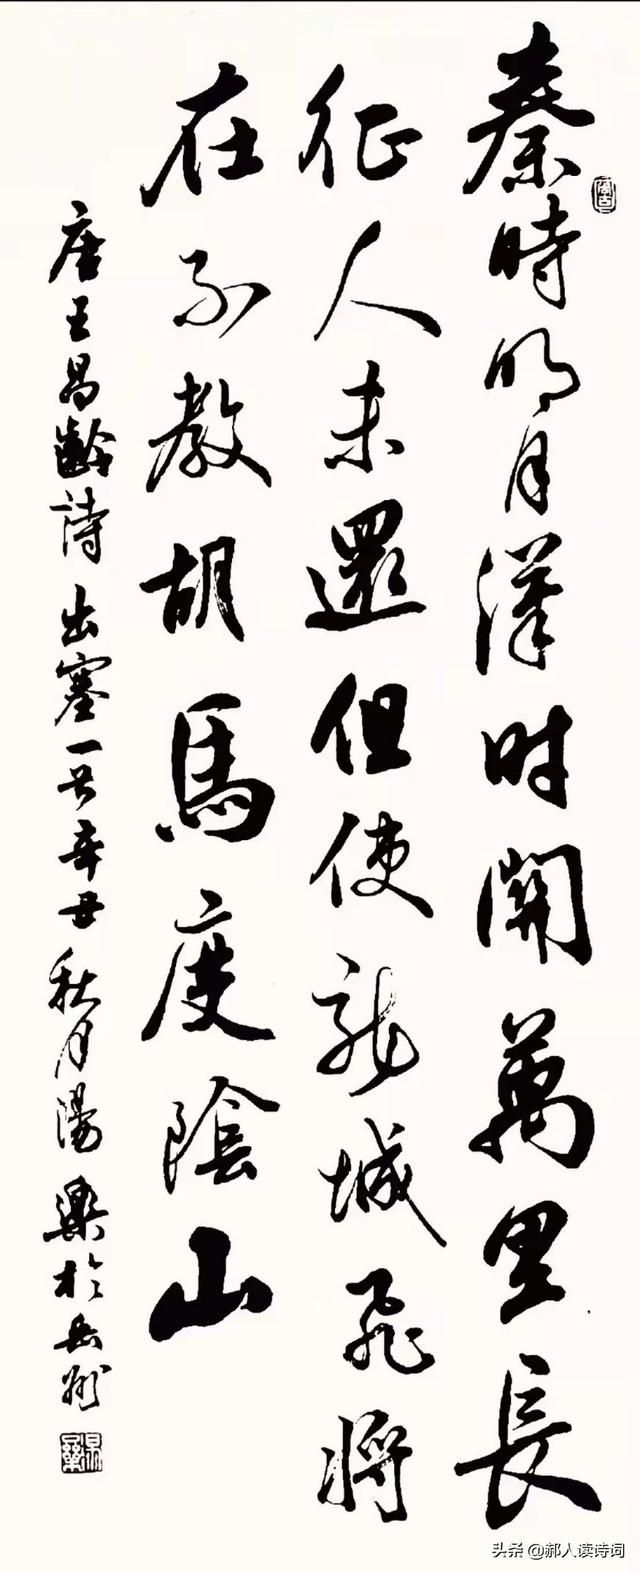 秦時明月漢时關萬里長
征人未還但使龍城飛將
在不教胡馬度陰山
唐王昌齡詩出塞一首辛丑秋月湯於岳州
头条 @郝人读诗词